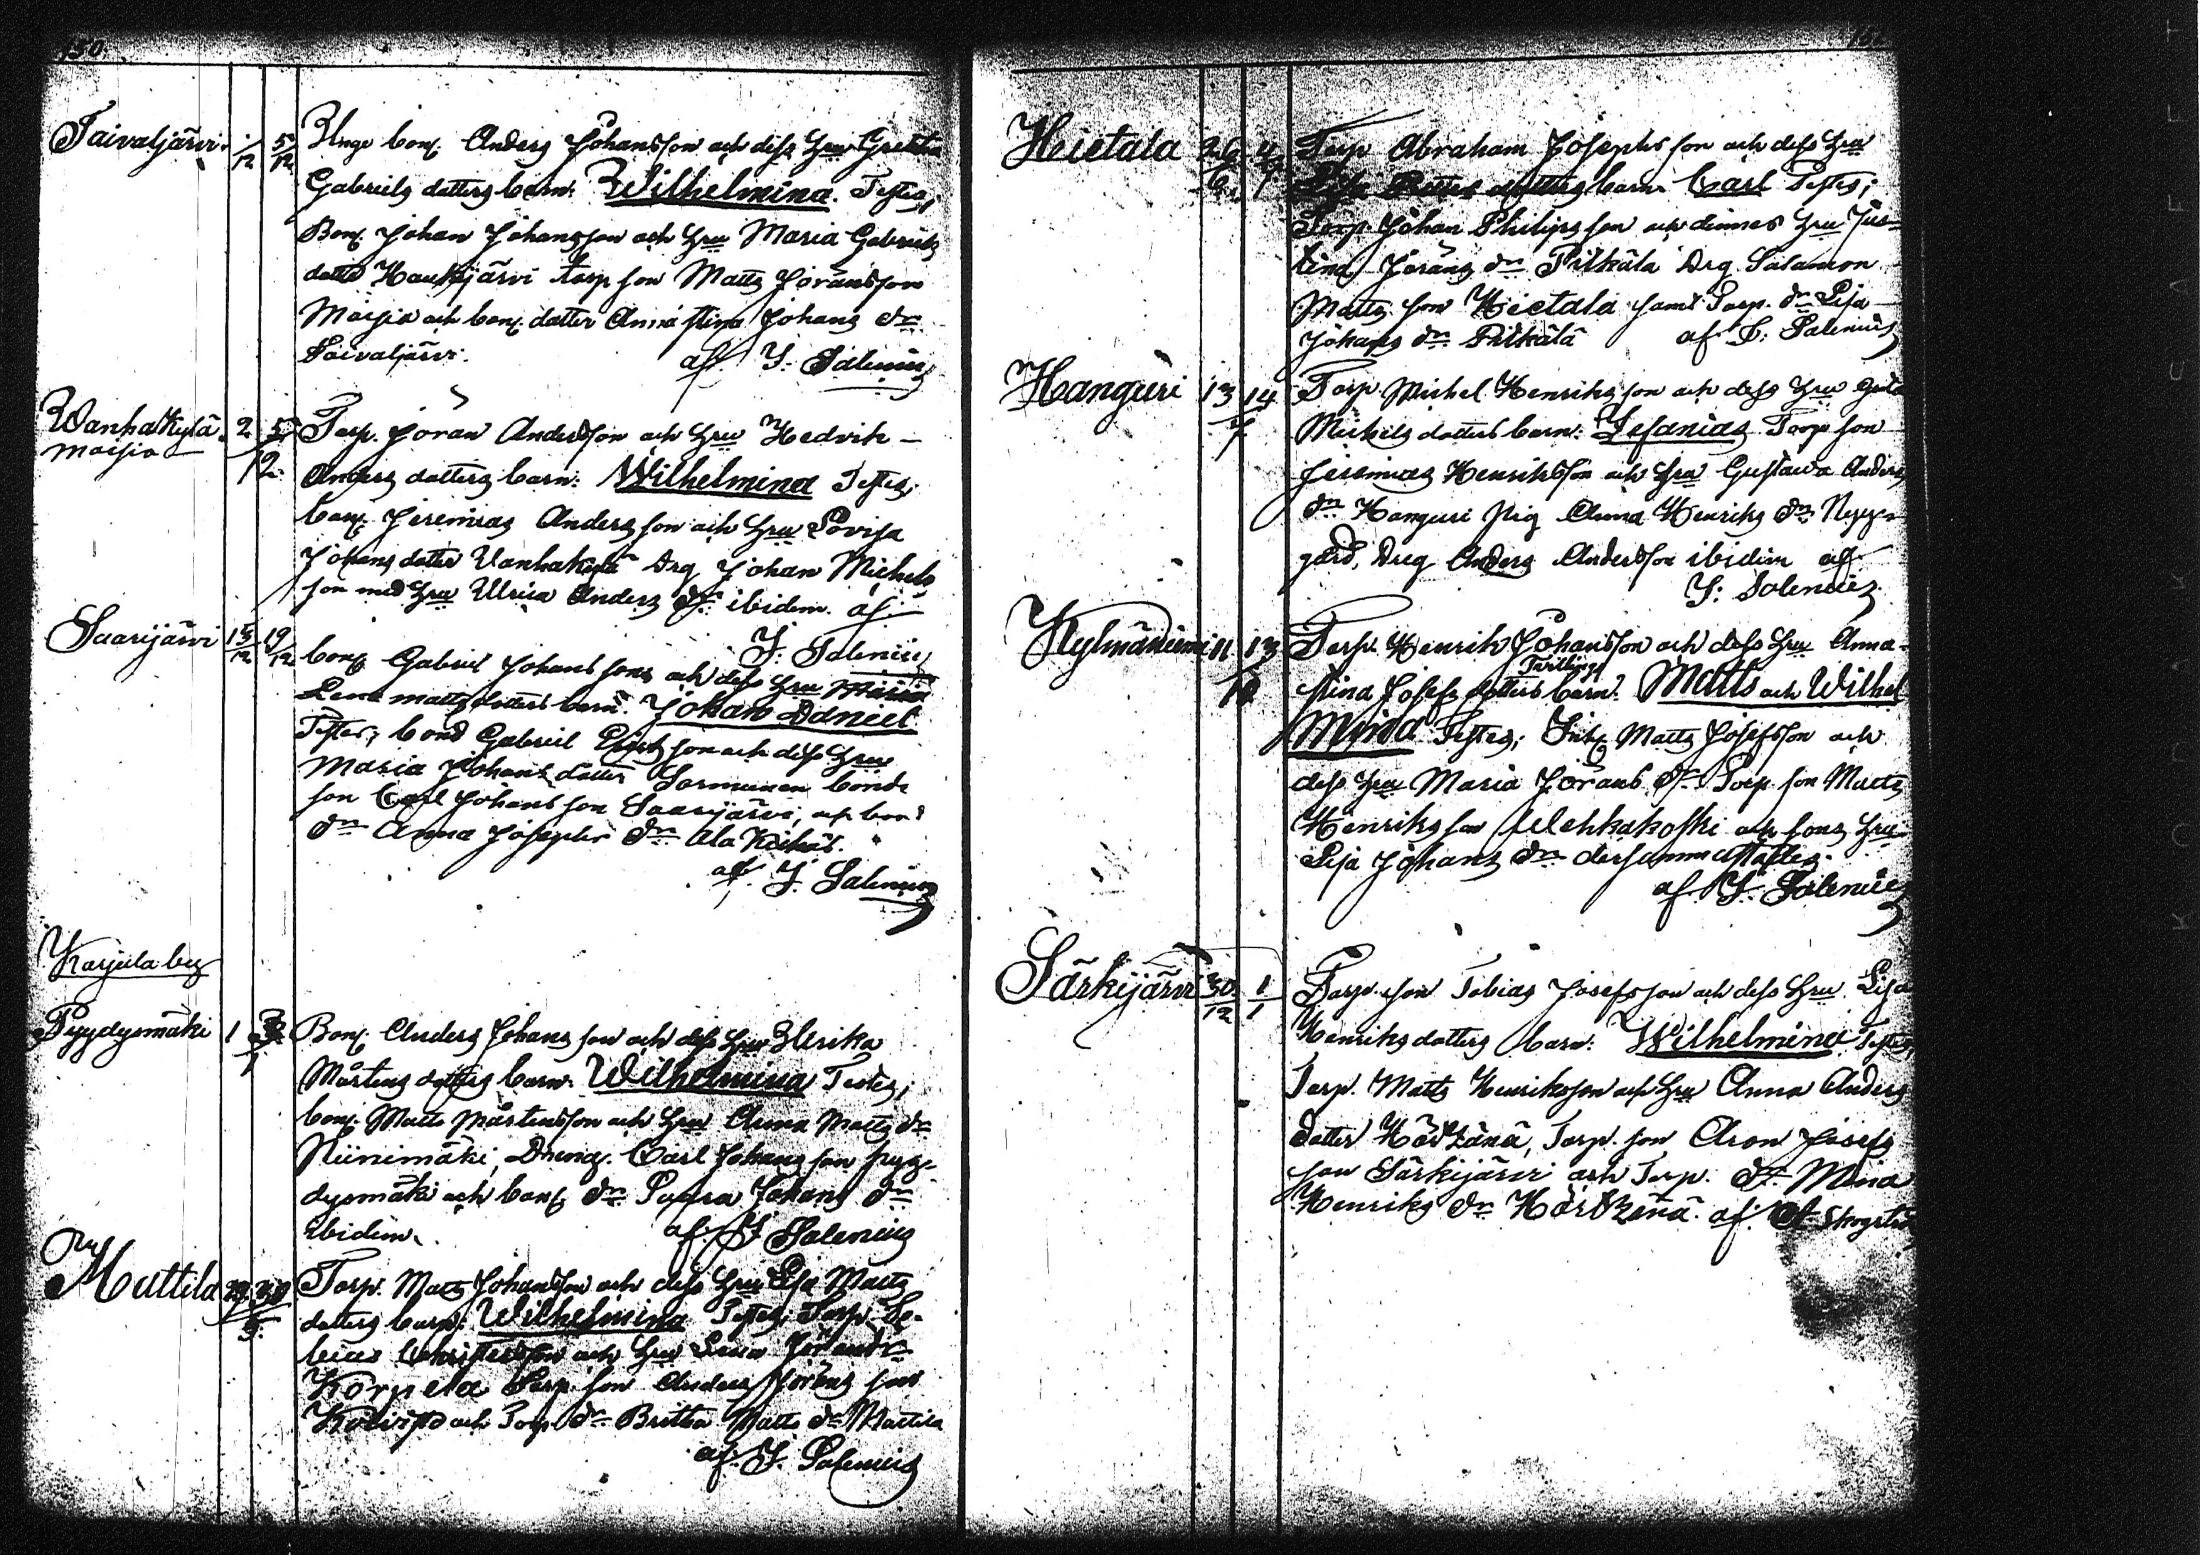 150
Taivaljärvi 1/12 5/12 Unge bonf. Anders Johansson och dess hru Gretha
Gabriels dotters barn: Wilhelmina. Testes;
Bonf. Johan Johansson och hru Maria Gabriels
dotter Haukijärvi torp son Matts Joransson
Moisio och bonf. dotter Anna Stina Johans dr
Taivaljärvi. af J. Salenius
Wanhakylä 2 5 Torp. Joran Andersson och hru Hedvik
Moisio 12 Anders dotters barn: Wilhelmina Testes;
bonf. Jeremias Andersson och hru Lovisa
Johans dotter Vanhakylä Drg Johan Michels
son med hru Ulrica Anders dr ibidem. af
J. Salenius
Saarijärvi 15/12 19/12 bonf Gabriel Johanssons och dess hru Maria
Lena Matts dotters barn. Johan Daniel
Testes; bond Gabriel son och dess hru
Maria Johans dotter Sormunen bonde
son Carl Johansson Saarijärvi, och bond
dr Anna Josephs dr Ala
af J. Salenius
Karjula by
Pyydysmäki 1 Bonf. Anders Johans son och dess hru Ulrika
Mårtens dotters barn: Wilhelmina Testes;
bonf. Matts Mårtensson och hru Anna Matts dr
Niinimäki, Dreng. Carl Johans son pyy-
dysmäki och bonf dr Johans dr
ibidem. af J Salenius
Mattila 29 30 Torp. Matts Johansson och dess hru Lisa Matts
9. dotters barn: Wilhelmina Testes; Torp.
Christersson och hru Lena Jörans dr
Korpela Torp. son Anders Jörans son
Koivisto och Torp dr Britha Matts dr Mattila
af J. Salenius
Hietala 26 Torp Abraham Josephs son och dess hru
Lisa dotters barn Carl Testes;
Torp. Johan Philips son och dennes hru Jus-
tina Jörans dr Pitkälä Drg. Salamon
Matts son Hietala samt Torp. dr Lisa
Johans dr Pitkälä af J. Salenius
Hanguri 13 14 Torp Michel Henriks son och dess hru
Mickels dotters barn: Torp son
Jeremias Henriksson och hru Gustava Anders
dr Hanguri Pig Anna Henriks dr Nyy-
gård, Dreg Anders Andersson ibidem af
J: Salenius
Kylmäniemi 11 13 Torp. Henrik Johansson och dess hru Anna
Tvillings
10 Stina Josefs dotters barn: Matts och Wilhel
mina Testes; Inh. Matts Josefsson och
dess hru Maria Jörans dr Torp son Matts
Henriks son Wehkakoski och sons hru
Lisa Johans dr dersammastädes.
af J. Salenius
Särkijärvi 30/12 1/1 Torp. son Tobias Josefsson och dess hru Lisa
Henriks dotters barn: Wilhelmina Testes;
Torp. Matts Henriksson och hru Anna Anders
dotter Hörtzänä, Torp. son Aron Josefs
son Särkijärvi och Torp. dr Mina
Henriks dr Hörtzänä. af
KODAK SAFET